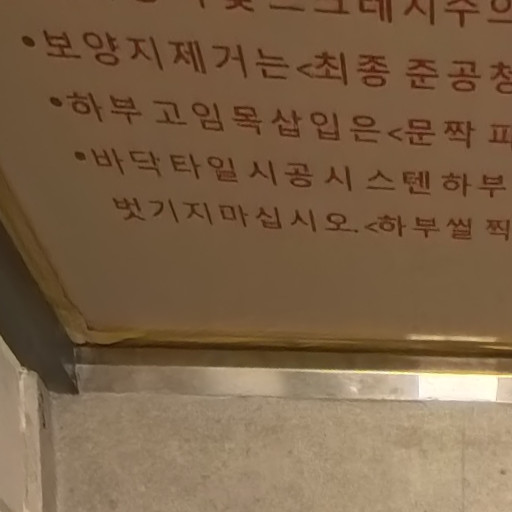 스크래치주의
•보양지제거는<최종 준공청
•하부 고임목삽입은<문짝 파
•바닥타일시공시 스텐하부
벗기지마십시오.<하부씰 찍